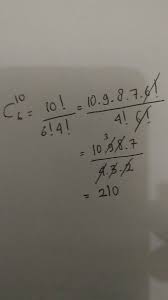 C₆¹⁰ = 10! / 6! 4! = 10.9.8.7.6! / 4! 6!
= 10.9̷³.8̷.7 / 4̷.3̷.2̷
= 210